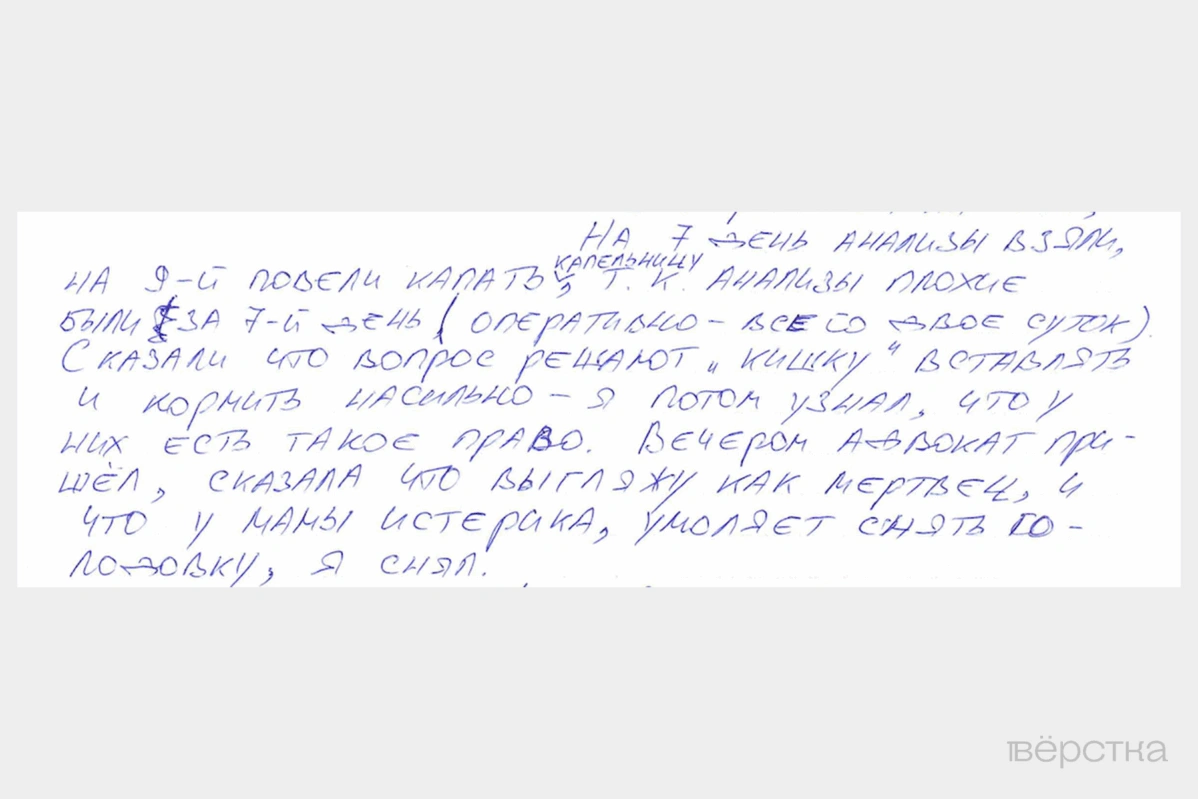 НА 7 ДЕНЬ АНАЛИЗЫ ВЗЯЛИ,
КАПЕЛЬНИЦУ
НА 9-Й ПОВЕЛИ КАПАТЬ, Т. К. АНАЛИЗЫ ПЛОХИЕ
БЫЛИ ЗА 7-Й ДЕНЬ (ОПЕРАТИВНО – ВСЕГО ДВОЕ СУТОК).
СКАЗАЛИ ЧТО ВОПРОС РЕШАЮТ „КИШКУ“ ВСТАВЛЯТЬ
И КОРМИТЬ НАСИЛЬНО – Я ПОТОМ УЗНАЛ, ЧТО У
НИХ ЕСТЬ ТАКОЕ ПРАВО. ВЕЧЕРОМ АДВОКАТ ПРИ-
ШЁЛ, СКАЗАЛА ЧТО ВЫГЛЯЖУ КАК МЕРТВЕЦ, И
ЧТО У МАМЫ ИСТЕРИКА, УМОЛЯЕТ СНЯТЬ ГО-
ЛОДОВКУ, Я СНЯЛ.
вёрстка